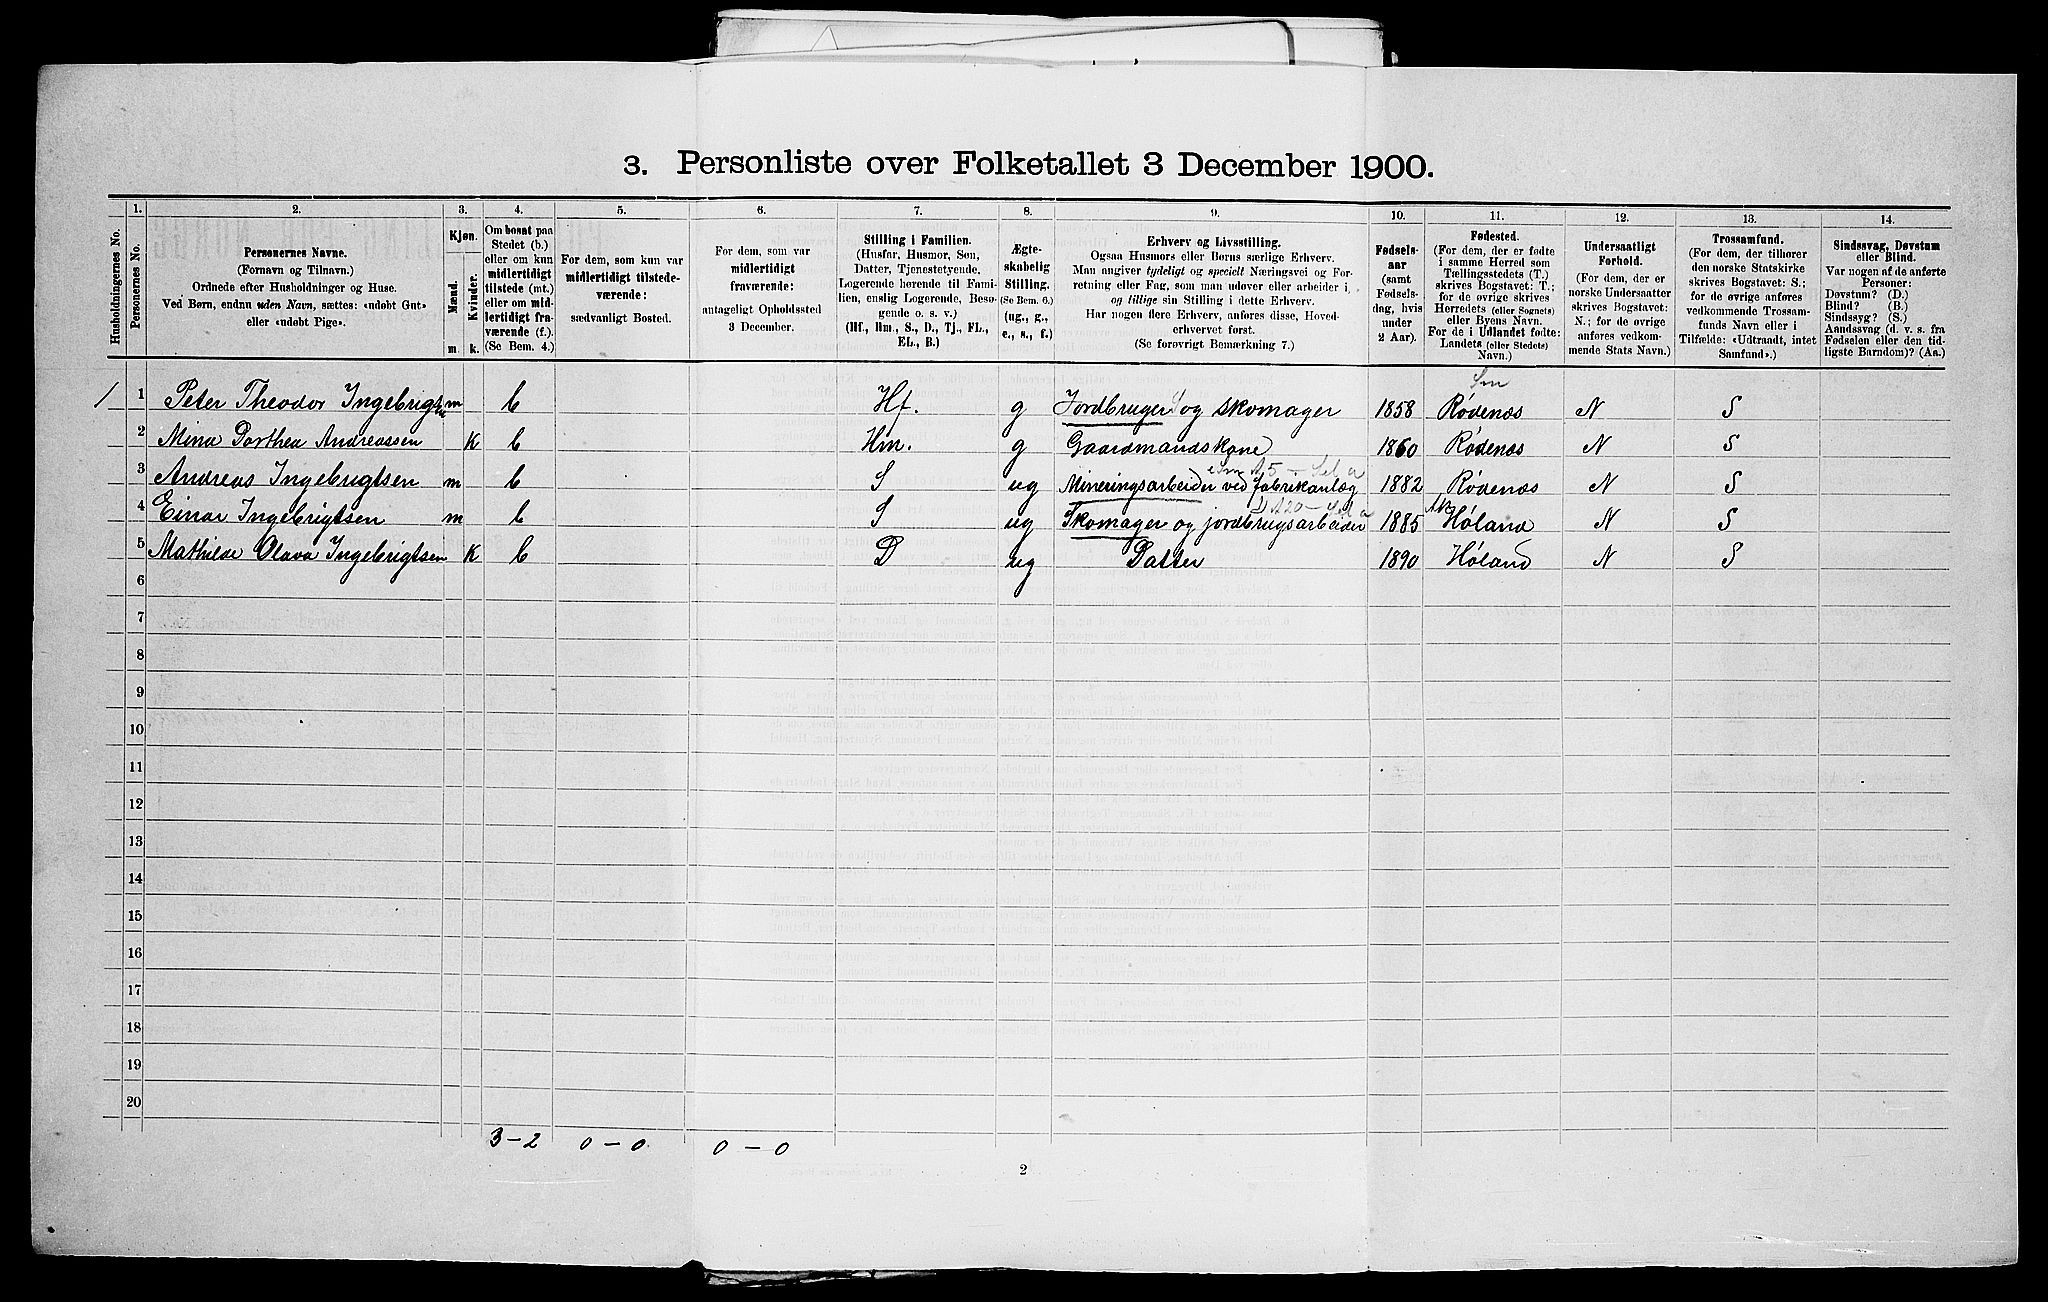 3. Personliste over Folketallet 3 December 1900.
Husholdningernes No.
1.
Personernes No.
2.
Personernes Navne.
(Fornavn og Tilnavn.)
Ordnede efter Husholdninger og Huse.
Ved Børn, endnu uden Navn, sættes: «udøbt Gut»
eller «udøbt Pige».
3.
Kjøn.
Mænd.
Kvinder.
m.
k.
4.
Om bosat paa
Stedet (b.)
eller om kun
midlertidigt
tilstede (mt.)
eller om mid-
lertidigt fra-
værende (f.).
(Se Bem. 4.)
5.
For dem, som kun var
midlertidigt tilstede-
værende:
sædvanligt Bosted.
6.
For dem, som var
midlertidigt
fraværende:
antageligt Opholdssted
3 December.
7.
Stilling i Familien.
(Husfar, Husmor, Søn,
Datter, Tjenestetyende,
Logerende hørende til Fami-
lien, enslig Logerende, Besø-
gende o. s. v.)
(Hf., Hm., S., D., Tj., FL.,
EL., B.)
8.
Ægte-
skabelig
Stilling.
(Se Bem. 6.)
(ug., g.,
e., s., f.)
9.
Erhverv og Livsstilling.
Ogsaa Husmors eller Børns særlige Erhverv.
Man angiver tydeligt og specielt Næringsvei og For-
retning eller Fag, som man udøver eller arbeider i,
og tillige sin Stilling i dette Erhverv.
Har nogen flere Erhverv, anføres disse, Hoved-
erhvervet først.
(Se forøvrigt Bemærkning 7.)
10.
Fødsels-
aar
(samt
Fødsels-
dag, hvis
under
2 Aar).
11.
Fødested.
(For dem, der er fødte
i samme Herred som
Tællingsstedets (T.)
skrives Bogstavet: T.;
for de øvrige skrives
Herredets (eller Sognets)
eller Byens Navn.
For de i Udlandet fødte:
Landets (eller Stedets)
Navn.)
12.
Undersaatligt
Forhold.
(For dem, der er
norske Undersaatter
skrives Bogstavet:
N.; for de øvrige
anføres vedkom-
mende Stats Navn.)
13.
Trossamfund.
(For dem, der tilhører
den norske Statskirke
skrives Bogstavet: S.;
for de øvrige anføres
vedkommende Trossam-
funds Navn eller i
Tilfælde: «Udtraadt, intet
Samfund».)
14.
Sindssvag, Døvstum
eller Blind.
Var nogen af de anførte
Personer:
Døvstum? (D.)
Blind? (B.)
Sindssyg? (S.)
Aandssvag (d. v. s. fra
Fødselen eller den tid-
ligste Barndom)? (Aa.)
Sm
1 1 Peter Theodor Ingebrigtsen m b Hf. g Jordbruger og skomager 1858 Rødenæs N S
2 Mina Dorthea Andreassen K b Hm. g Gaardmandskone 1860 Rødenæs N S
3 Andreas Ingebrigtsen m b S ug Mineringsarbeider ved fabrikanlæg 1882 Rødenæs N S
4 Einar Ingebrigtsen m b S ug Skomager og jordbrugsarbeider 1885 Ak Høland N S
5 Mathilde Olava Ingebrigtsen K b D ug Datter 1890 Høland N S
6
7
8
9
10
11
12
13
14
15
16
17
18
19
20
3-2 0-0. 0-0
2